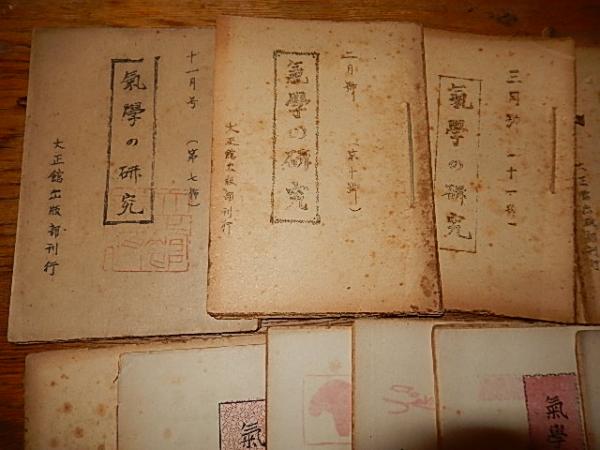 十一月号（第七號）
氣學の研究
大正館出版部刊行
二月號（第十號）
氣學の研究
大正館出版部刊行
三月號（十一號）
氣學の研究
氣
氣學